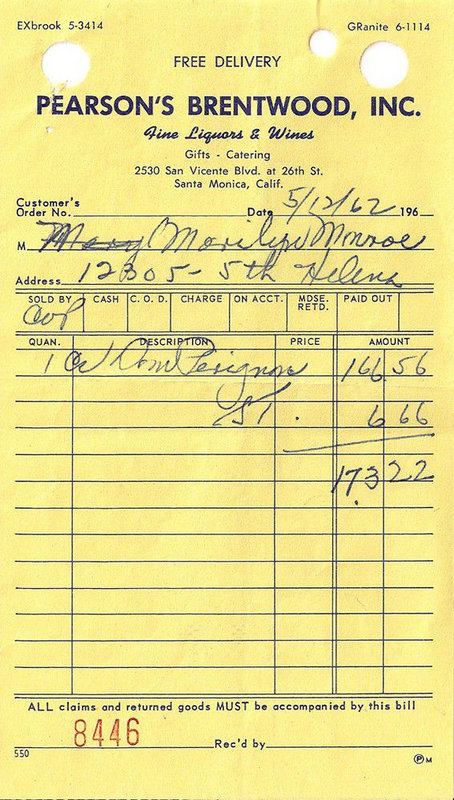 EXbrook 5-3414 GRanite 6-1114
FREE DELIVERY
PEARSON'S BRENTWOOD, INC.
Fine Liquors & Wines
Gifts - Catering
2530 San Vicente Blvd. at 26th St.
Santa Monica, Calif.
Customer's
Order No. Date 5/12/62 196
M Mary Marilyn Monroe
Address 12305 - 5th Helena
SOLD BY CASH C. O. D. CHARGE ON ACCT. MDSE. RETD. PAID OUT
QUAN. DESCRIPTION PRICE AMOUNT
1 Dom Perignon 166 56
ST. 6 66
173 22
ALL claims and returned goods MUST be accompanied by this bill
8446 Rec'd by
550 P M